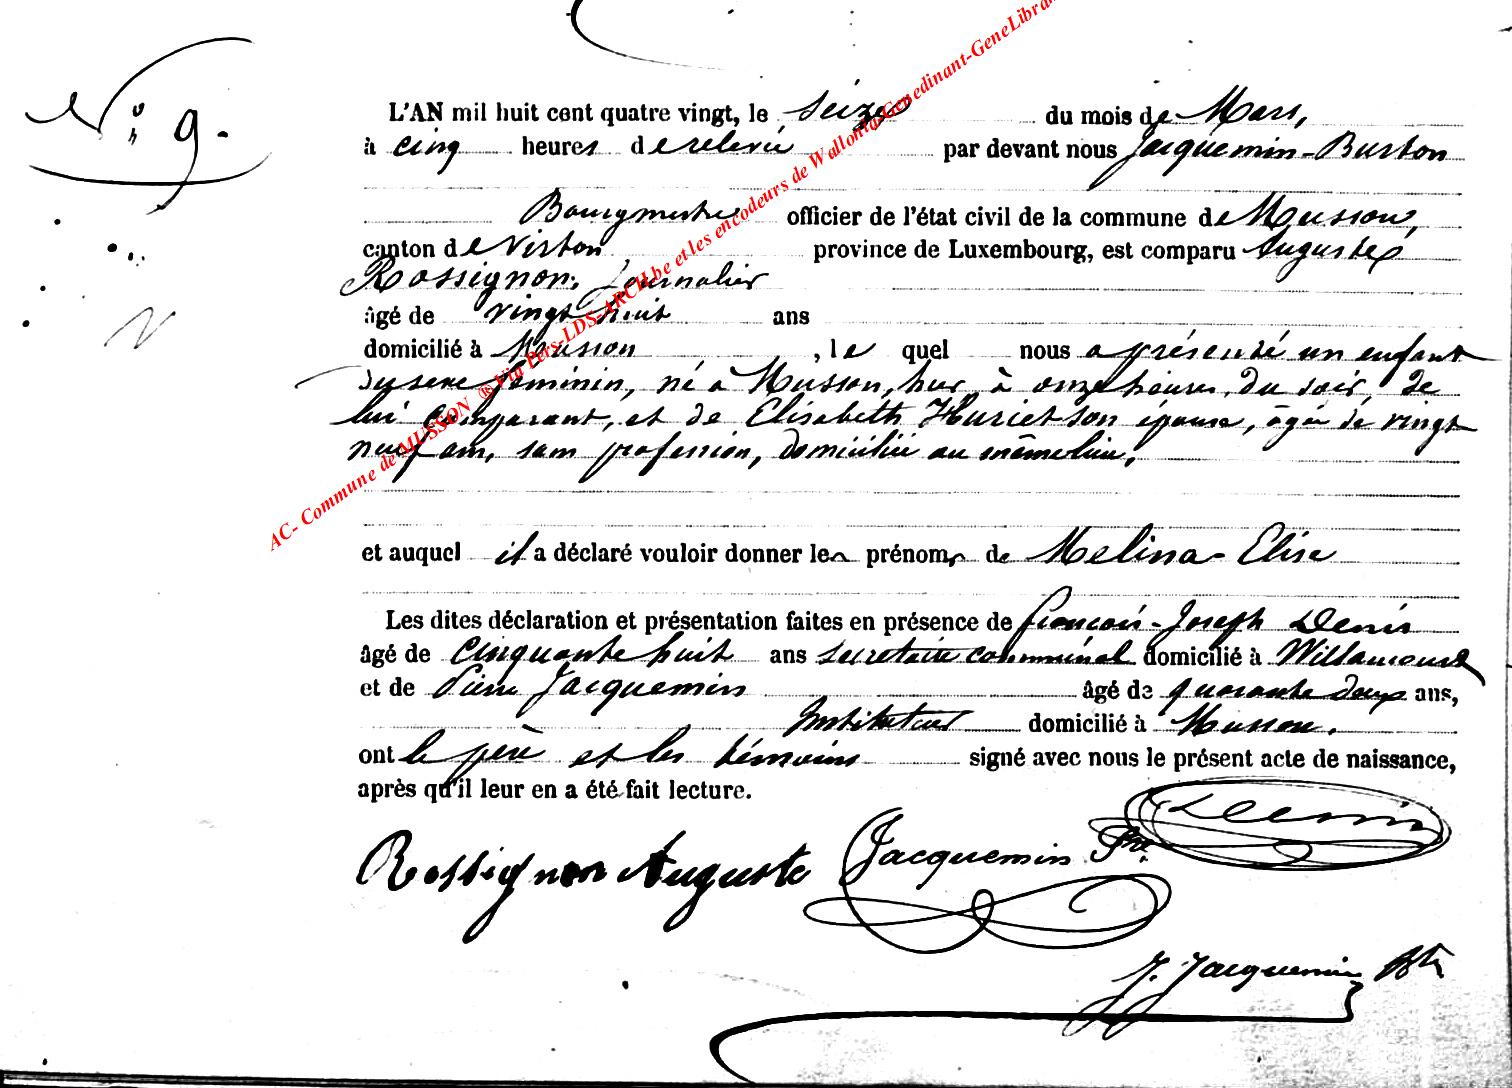 N° 9.
L'AN mil huit cent quatre vingt, le seize du mois de Mars,
à cinq heures de relevée par devant nous Jacquemin-Burton
Bourgmestre officier de l'état civil de la commune de Musson,
canton de Virton province de Luxembourg, est comparu Auguste
Rossignon, Journalier
âgé de vingt huit ans
domicilié à Musson, lequel nous a présenté un enfant
du sexe féminin, né à Musson, hier, à onze heures du soir, de
lui comparant, et de Elisabeth Huriet son épouse, âgée de vingt
neuf ans, sans profession, domiciliée au même lieu,
et auquel il a déclaré vouloir donner les prénoms de Melina-Elise
Les dites déclaration et présentation faites en présence de françois-Joseph Denis
âgé de cinquante huit ans secrétaire communal domicilié à Willancourt
et de Pierre Jacquemin âgé de quarante deux ans,
Instituteur domicilié à Musson.
ont le père et les témoins signé avec nous le présent acte de naissance,
après qu'il leur en a été fait lecture.
Rossignon Auguste Jacquemin Prre Denis
J. Jacquemin Btn
AC- Commune de MUSSON ® Via Pers-LDS-ARCH.be et les encodeurs de Wallonia-Genedinant-GeneLibra